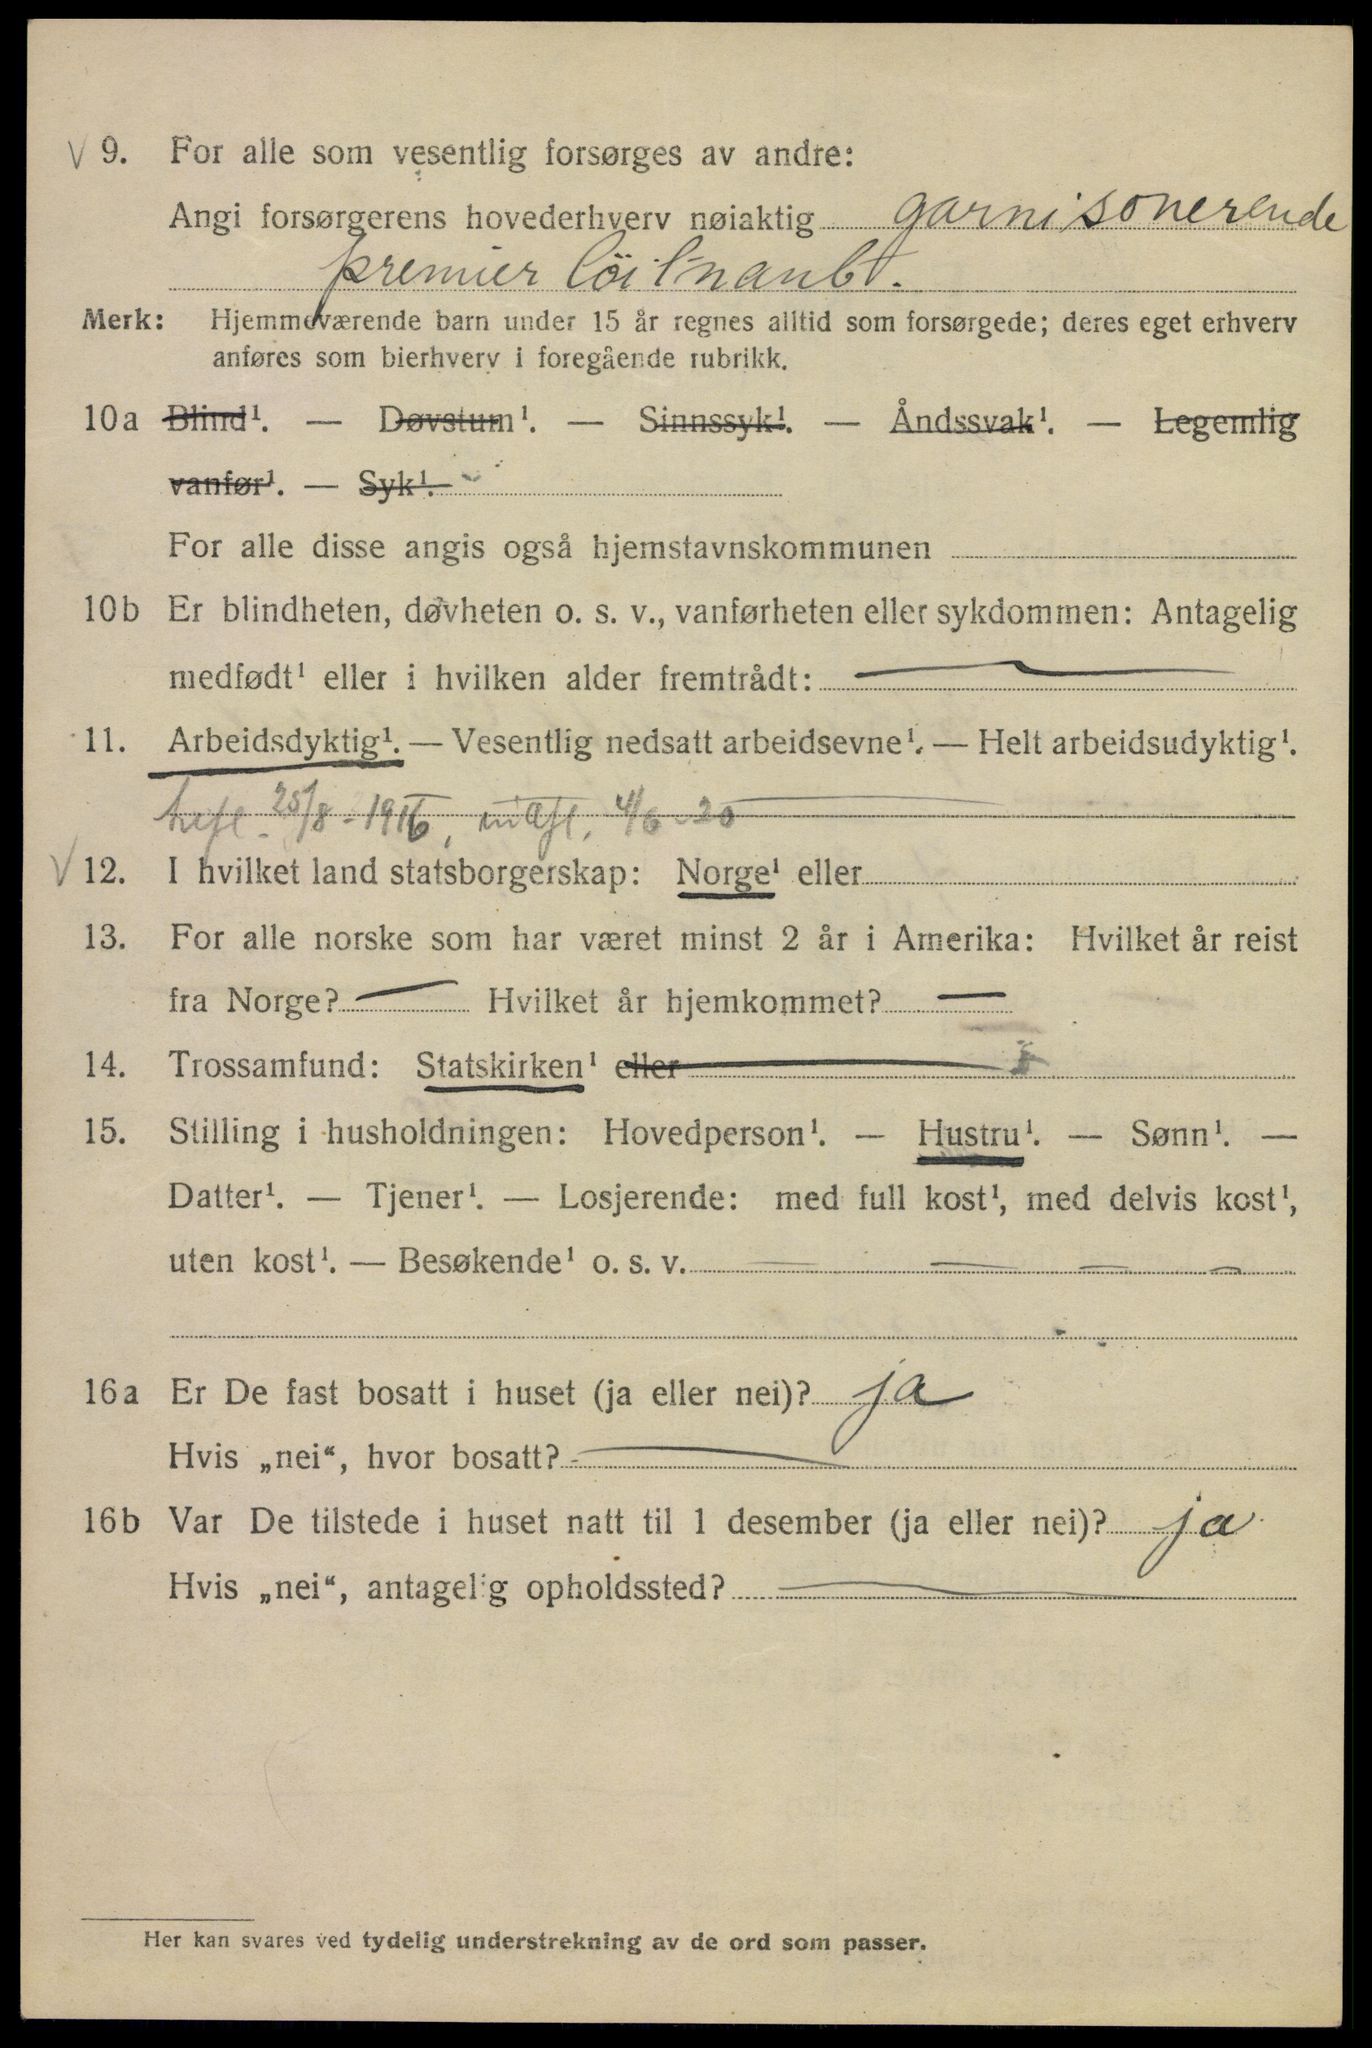 9. For alle som vesentlig forsørges av andre:
Angi forsørgerens hovederhverv nøiaktig garnisonerende
premier löitnanbt.
Merk: Hjemmeværende barn under 15 år regnes alltid som forsørgede; deres eget erhverv
anføres som bierhverv i foregående rubrikk.
10a Blind¹. — Døvstum¹. — Sinnssyk¹. — Åndssvak¹. — Legemlig
vanfør¹. — Syk¹.
For alle disse angis også hjemstavnskommunen
10b Er blindheten, døvheten o. s. v., vanførheten eller sykdommen: Antagelig
medfødt¹ eller i hvilken alder fremtrådt:
11. Arbeidsdyktig¹. — Vesentlig nedsatt arbeidsevne¹. — Helt arbeidsudyktig¹.
25/8 - 1916, 4/6 - 20
12. I hvilket land statsborgerskap: Norge¹ eller
13. For alle norske som har været minst 2 år i Amerika: Hvilket år reist
fra Norge? — Hvilket år hjemkommet? —
14. Trossamfund: Statskirken¹ eller
15. Stilling i husholdningen: Hovedperson¹. — Hustru¹. — Sønn¹. —
Datter¹. — Tjener¹. — Losjerende: med full kost¹, med delvis kost¹,
uten kost¹. — Besøkende¹ o. s. v. — — — —
16a Er De fast bosatt i huset (ja eller nei)? ja
Hvis „nei“, hvor bosatt?
16b Var De tilstede i huset natt til 1 desember (ja eller nei)? ja
Hvis „nei“, antagelig opholdssted?
Her kan svares ved tydelig understrekning av de ord som passer.